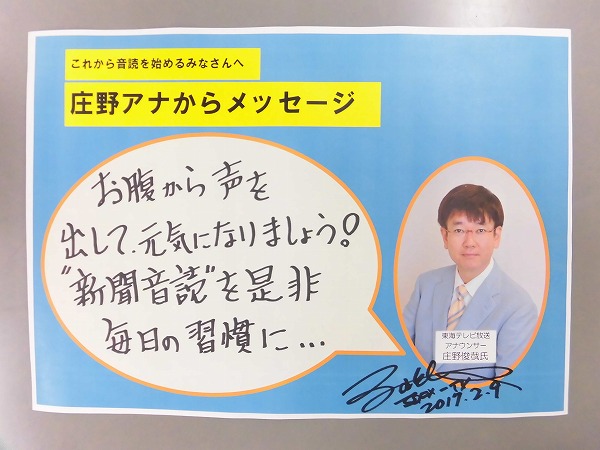 これから音読を始めるみなさんへ
庄野アナからメッセージ
お腹から声を
出して、元気になりましょう!
"新聞音読"を是非
毎日の習慣に...
東海テレビ放送
アナウンサー
庄野俊哉氏
2017.2.9